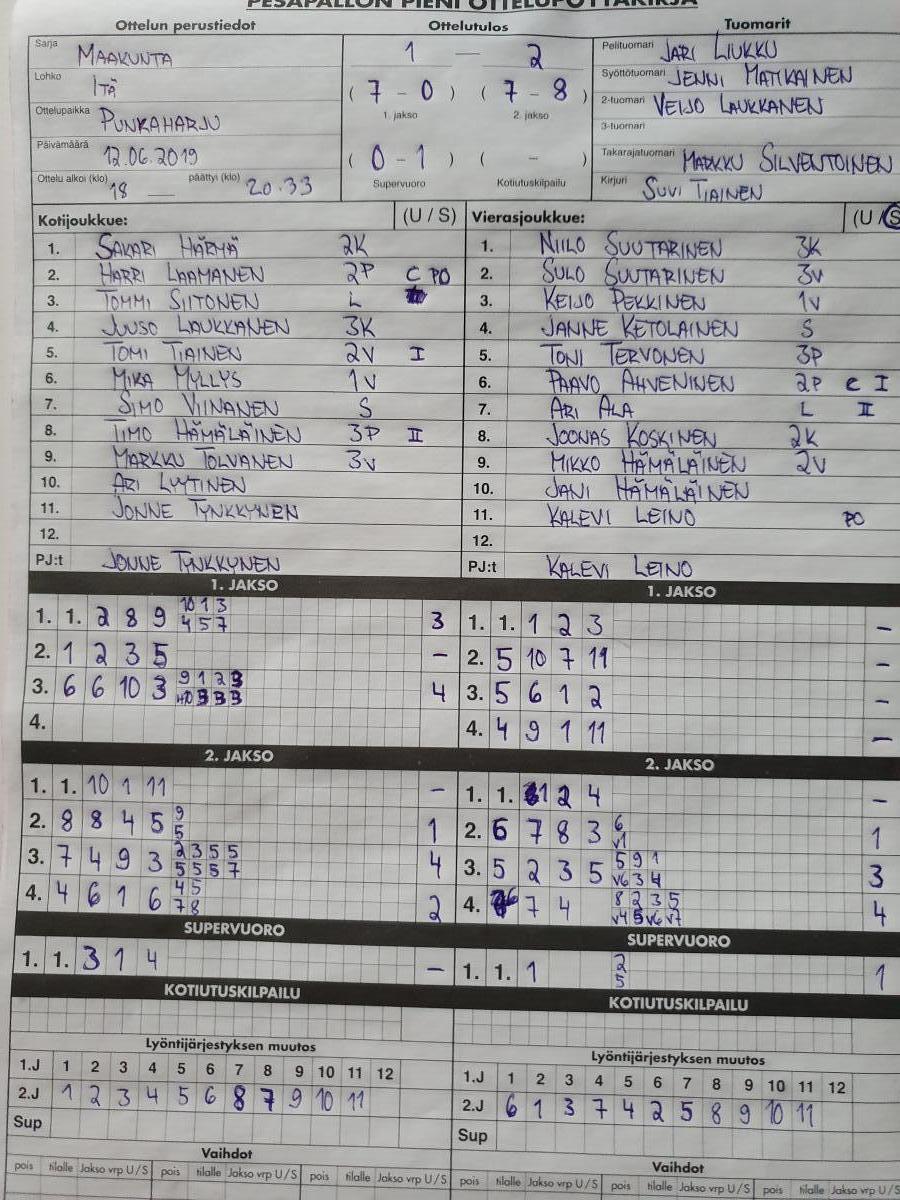 PESÄPALLON PIENI OTTELUPÖYTÄKIRJA
Ottelun perustiedot
Sarja MAAKUNTA
Lohko ITÄ
Ottelupaikka PUNKAHARJU
Päivämäärä 12.06.2019
Ottelu alkoi (klo) 18 päättyi (klo) 20.33
Ottelutulos
1 — 2
( 7 - 0 ) ( 7 - 8 )
1. jakso 2. jakso
( 0 - 1 ) ( - )
Supervuoro Kotiutuskilpailu
Tuomarit
Pelituomari JARI LIUKKU
Syöttötuomari JENNI MATIKAINEN
2-tuomari VEIJO LAUKKANEN
3-tuomari
Takarajatuomari MARKKU SILVENTOINEN
Kirjuri SUVI TIAINEN
Kotijoukkue: (U / S)
1. SAKARI HÄRMÄ 2K
2. HARRI LAAMANEN 2P C PO
3. TOMMI SIITONEN L
4. JUUSO LAUKKANEN 3K
5. TOMI TIAINEN 2V I
6. MIKA MYLLYS 1V
7. SIMO VIINANEN S
8. TIMO HÄMÄLÄINEN 3P II
9. MARKKU TOLVANEN 3V
10. ARI LYYTINEN
11. JONNE TYNKKYNEN
12.
PJ:t JONNE TYNKKYNEN
Vierasjoukkue: (U / S
1. NIILO SUUTARINEN 3K
2. SULO SUUTARINEN 3V
3. KEIJO PEKKINEN 1V
4. JANNE KETOLAINEN S
5. TONI TERVONEN 3P
6. PAAVO AHVENINEN 2P C I
7. ARI ALA L II
8. JOONAS KOSKINEN 2K
9. MIKKO HÄMÄLÄINEN 2V
10. JANI HÄMÄLÄINEN
11. KALEVI LEINO PO
12.
PJ:t KALEVI LEINO
1. JAKSO
1. 1. 2 8 9 10 1 3 3
4 5 7
2. 1 2 3 5 –
3. 6 6 10 3 9 1 2 3 4
3 3 3
4.
1. JAKSO
1. 1. 1 2 3 –
2. 5 10 7 11 –
3. 5 6 1 2 –
4. 4 9 1 11 –
2. JAKSO
1. 1. 10 1 11 –
2. 8 8 4 5 9 1
5
3. 7 4 9 3 2 3 5 5 4
5 5 5 7
4. 4 6 1 6 4 5 2
7 8
2. JAKSO
1. 1. 1 2 4 –
2. 6 7 8 3 6 1
V1
3. 5 2 3 5 5 9 1 3
V6 3 4
4. 6 7 4 8 2 3 5 4
V4 5 V6 V7
SUPERVUORO
1. 1. 3 1 4 –
SUPERVUORO
1. 1. 1 2 1
5
KOTIUTUSKILPAILU
KOTIUTUSKILPAILU
Lyöntijärjestyksen muutos
1.J 1 2 3 4 5 6 7 8 9 10 11 12
2.J 1 2 3 4 5 6 8 7 9 10 11
Sup
Lyöntijärjestyksen muutos
1.J 1 2 3 4 5 6 7 8 9 10 11 12
2.J 6 1 3 7 4 2 5 8 9 10 11
Sup
Vaihdot
pois tilalle Jakso vrp U / S pois tilalle Jakso vrp U / S pois tilalle Jakso vrp U / S
Vaihdot
pois tilalle Jakso vrp U / S pois tilalle Jakso vrp U / S pois tilalle Jakso vrp U / S